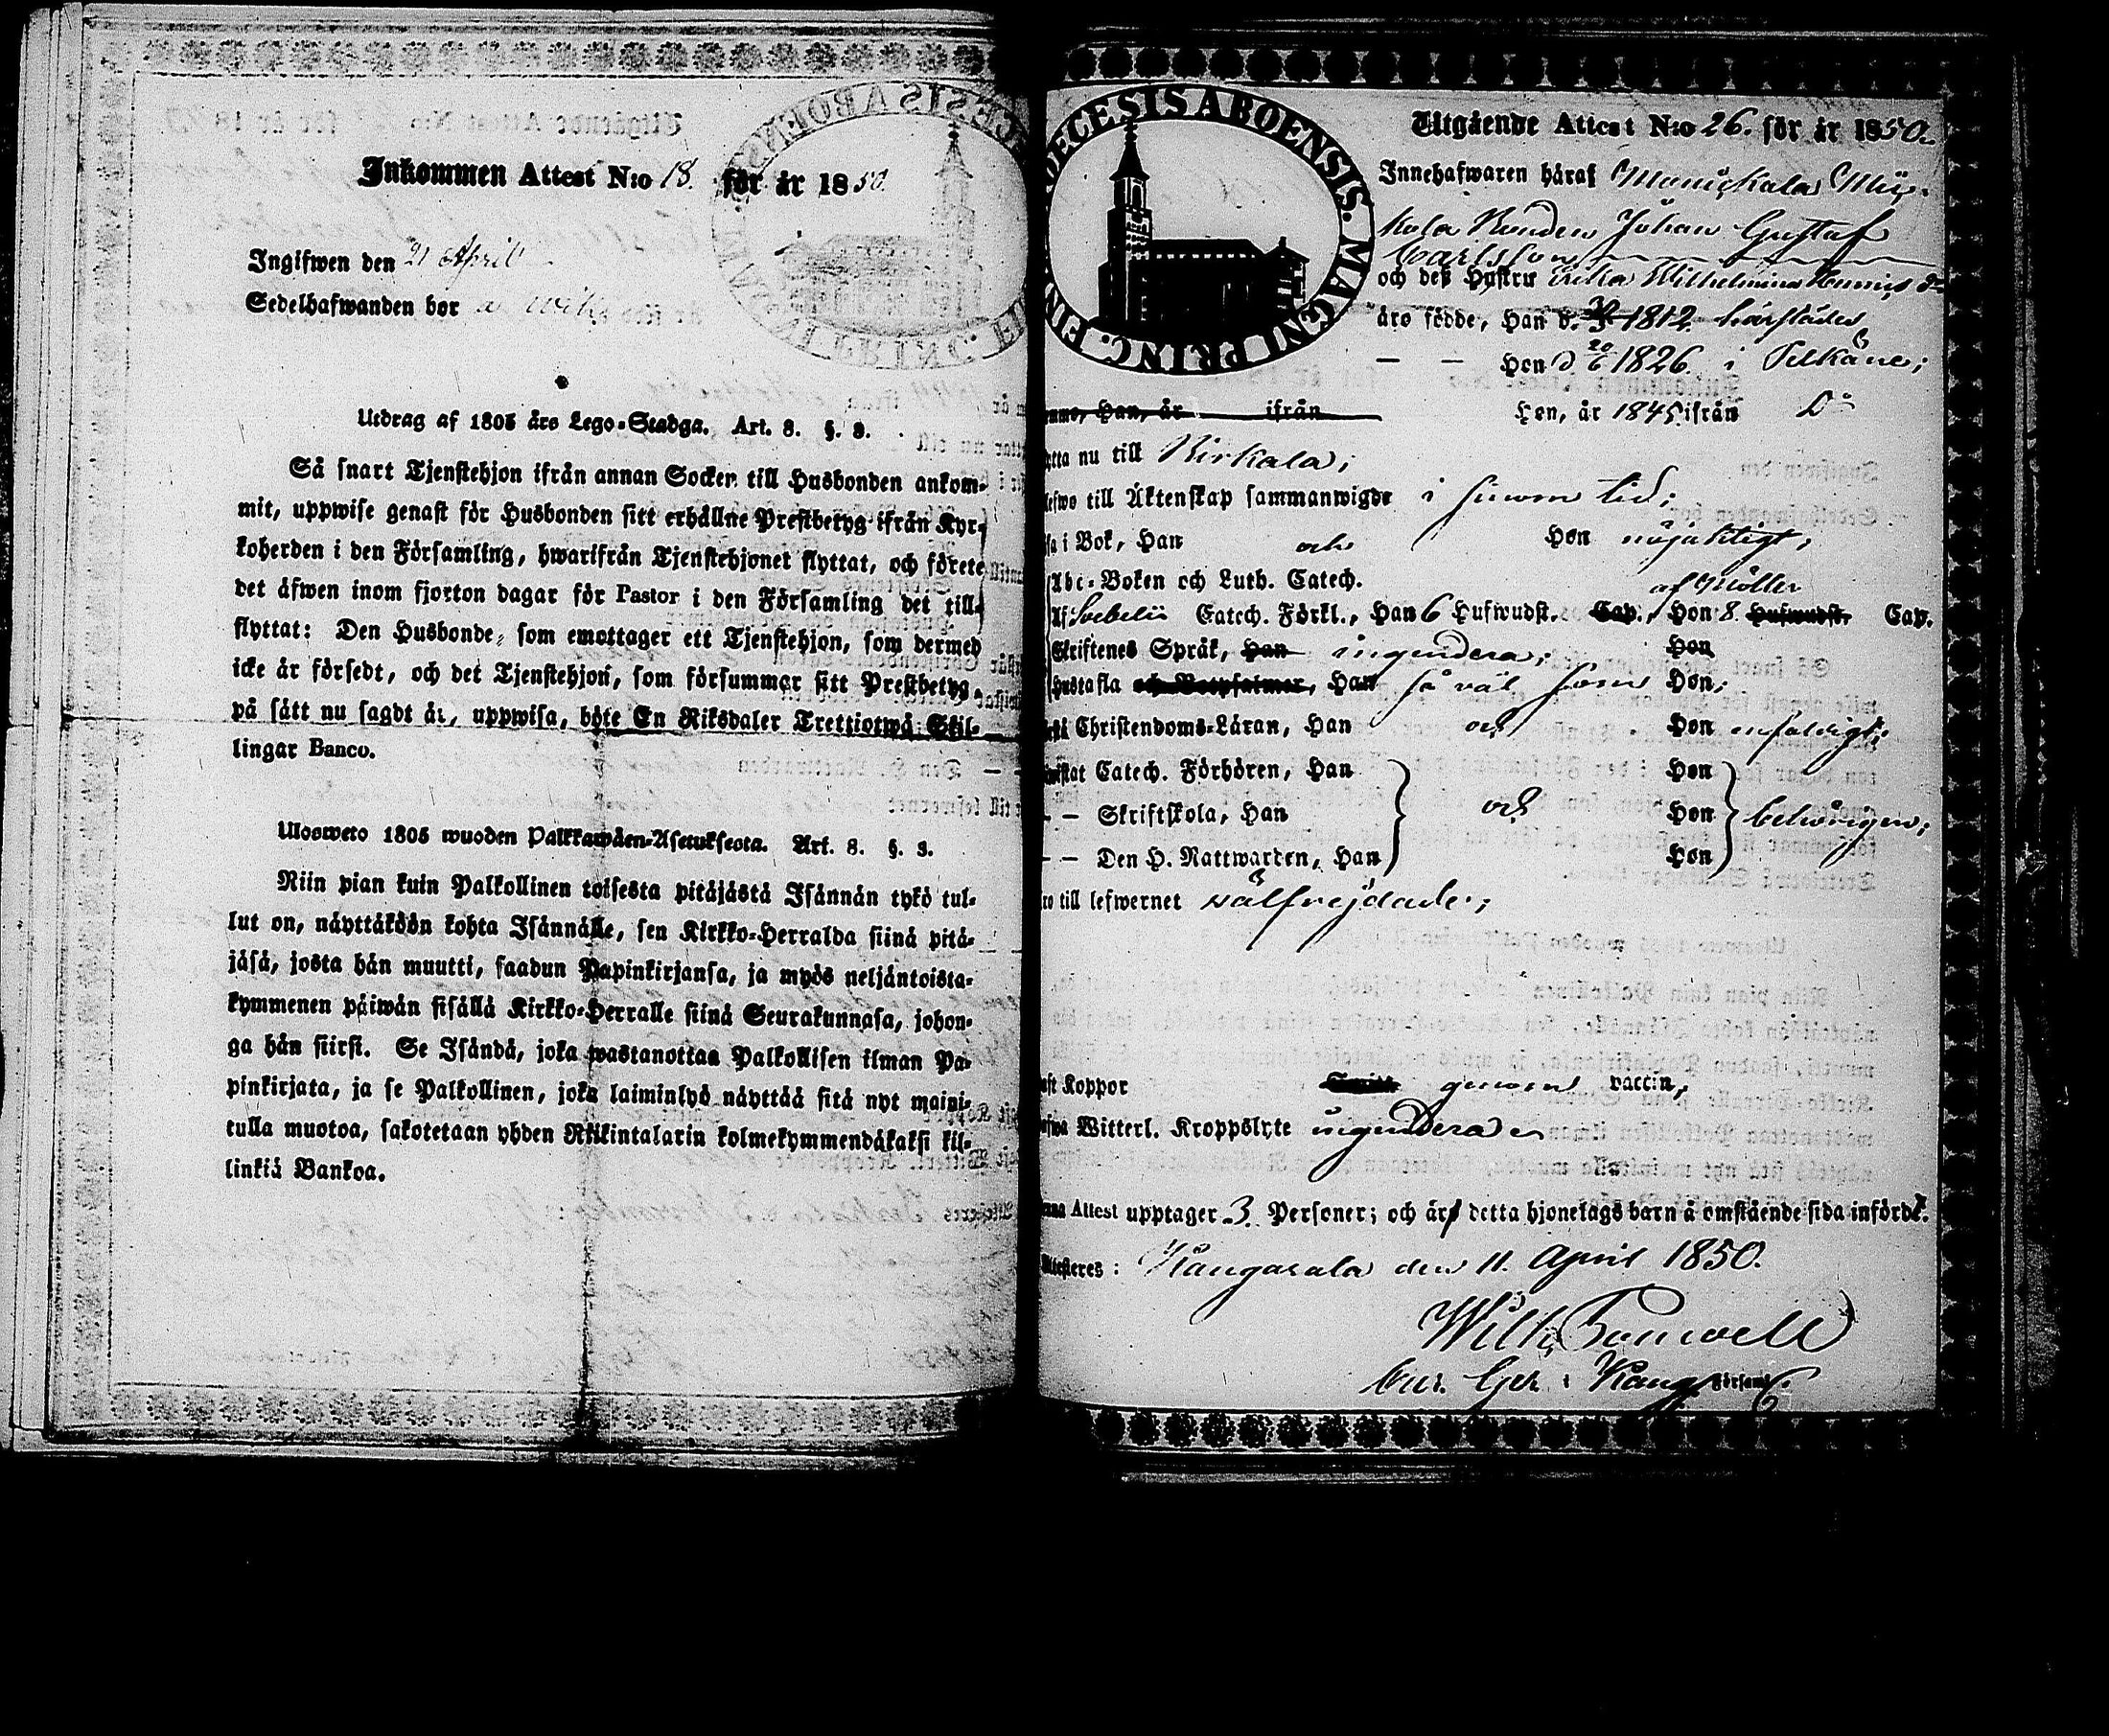 Inkommen Attest N:o 18. för år 1850.
Ingifwen den 21 April
Sedelhafwanden bor
Utdrag af 1805 års Lego-Stadga. Art. 8. §. 3.
Så snart Tjenstehjon ifrån annan Socken till Husbonden ankom-
mit, uppwise genast för Husbonden sitt erhållne Prestbetyg ifrån Kyr-
koherden i den Församling, hwarifrån Tjenstehjonet flyttat, och förete
det äfwen inom fjorton dagar för Pastor i den Församling det till-
flyttat: Den Husbonde, som emottager ett Tjenstehjon, som dermed
icke är försedt, och det Tjenstehjon, som försummar sitt Prestbetyg,
på sätt nu sagdt är, uppwisa, böte En Riksdaler Trettiotwå Skil-
lingar Banco.
Ulosweto 1805 wuoden Palkkawäen-Asetuksesta. Art. 8. §. 3.
Niin pian kuin Palkollinen toisesta pitäjästä Isännän tykö tul-
lut on, näyttäköön kohta Isännälle, sen Kirkko-Herralda siinä pitä-
jäsä, josta hän muutti, saadun Papinkirjansa, ja myös neljäntoista-
kymmenen päiwän sisällä Kirkko-Herralle siinä Seurakunnasa, johon-
ga hän siirsi. Se Isändä, joka wastanottaa Palkollisen ilman Pa-
pinkirjata, ja se Palkollinen, joka laiminlyö näyttää sitä nyt maini-
tulla muotoa, sakotetaan yhden Riikintalarin kolmekymmendäkaksi kil-
linkiä Bankoa.
DIOECESIS ABOENSIS. MAGNI PRINC. FIN
Utgående Attest N:o 26. för år 1850.
Innehafwaren häraf Manickala Myc-
kola Bonden Johan Gustaf
Carlsson
och deß Hustru Ulrika Wilhelmina Henricsdr
äro födde, Han d. 1812 härstädes
— — Hon d 20/6 1826. i Pelkäne;
Han, år ifrån Hon, år 1845 ifrån Do
nu till Birkala;
till Äktenskap sammanwigde i sinom tid;
i Bok, Han och Hon nöjaktigt;
Abc-Boken och Luth. Catech. af Möller
Svebelii Catech. Förkl., Han 6 Hufwudst. Cap., Hon 8. Hufwudst. Cap.
Skriftenes Språk, Han ingendera; Hon
Hustafla och Botpsalmer, Han så väl som Hon;
Christendoms-Läran, Han och Hon enfaldigt;
Catech. Förhören, Han Hon
— Skriftskola, Han och Hon behörigen;
— — Den H. Nattwarden, Han Hon
till lefwernet välfrejdade;
Koppor genom vaccin;
Witterl. Kroppslyte ingendera
Attest upptager 3. Personer; och är detta hjonelags barn å omstående sida infördt.
Attesteres: Kangasala den 11. April 1850.
Wilh.
i Kang. Församl.